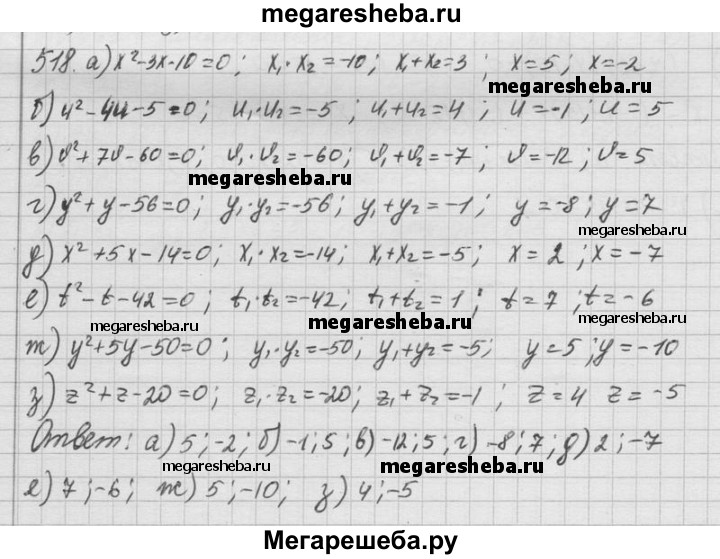 megaresheba.ru
518. а) x²-3x-10=0; x₁·x₂=-10; x₁+x₂=3; x=5; x=-2
megaresheba.ru
б) u²-4u-5=0; u₁·u₂=-5; u₁+u₂=4; u=-1; u=5
в) v²+7v-60=0; v₁·v₂=-60; v₁+v₂=-7; v=-12; v=5
megaresheba.ru
г) y²+y-56=0; y₁·y₂=-56; y₁+y₂=-1; y=-8; y=7
megaresheba.ru
д) x²+5x-14=0; x₁·x₂=-14; x₁+x₂=-5; x=2; x=-7
е) t²-t-42=0; t₁·t₂=-42; t₁+t₂=1; t=7; t=-6
megaresheba.ru megaresheba.ru megaresheba.ru
ж) y²+5y-50=0; y₁·y₂=-50; y₁+y₂=-5; y=5; y=-10
з) z²+z-20=0; z₁·z₂=-20; z₁+z₂=-1; z=4 z=-5
Ответ: а) 5;-2; б)-1;5; в)-12;5; г)-8;7; д) 2;-7
megaresheba.ru megaresheba.ru
е) 7;-6; ж) 5;-10; з) 4;-5
Мегарешеба.ру